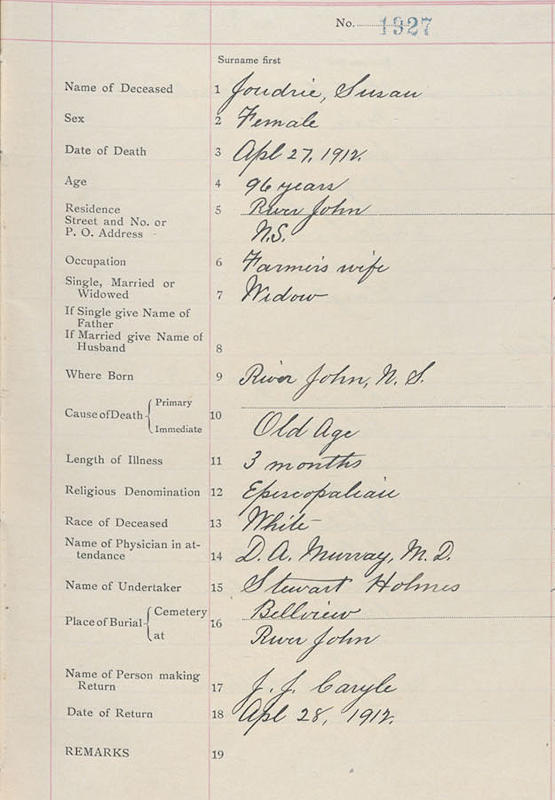 No. 1927
Surname first
Name of Deceased 1 Joudrie, Susan
Sex 2 Female
Date of Death 3 Apl 27, 1912.
Age 4 96 years
Residence 5 River John
Street and No. or
P. O. Address N.S.
Occupation 6 Farmer's wife
Single, Married or
Widowed 7 Widow
If Single give Name of
Father
If Married give Name of
Husband 8
Where Born 9 River John, N. S.
Cause of Death Primary 10
Immediate Old Age
Length of Illness 11 3 months
Religious Denomination 12 Episcopalian
Race of Deceased 13 White
Name of Physician in at-
tendance 14 D. A. Murray, M. D.
Name of Undertaker 15 Stewart Holmes
Place of Burial Cemetery 16 Bellview
at River John
Name of Person making
Return 17 J. J. Caryle
Date of Return 18 Apl 28, 1912.
REMARKS 19